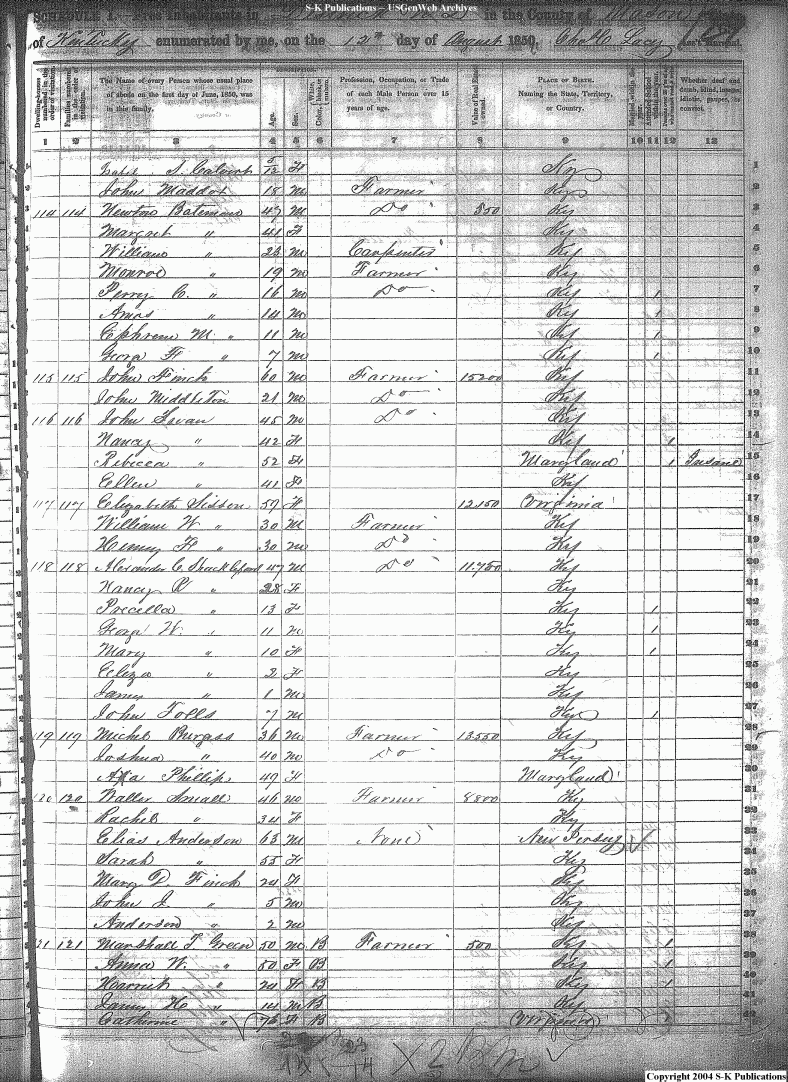 S-K Publications – USGenWeb Archives
SCHEDULE I. Free Inhabitants in in the County of Mason
of Kentucky enumerated by me, on the 12th day of August 1850. Lacy
Dwelling-houses numbered in the order of visitation. Families numbered in the order of visitation. The Name of every Person whose usual place of abode on the first day of June, 1850, was in this family. DESCRIPTION. Age. Sex. Color Profession, Occupation, or Trade of each Male Person over 15 years of age. Value of Real Estate owned. PLACE OF BIRTH. Naming the State, Territory, or Country. Whether deaf and dumb, blind, insane, idiotic, pauper, or convict.
1 2 3 4 5 6 7 8 9 10 11 12 13
J Calvert 5/12 F Ky 1
John Maddox 18 M Farmer Ky 2
114 114 Newton Bateman 47 M Do 550 Ky 3
Margret " 41 F Ky 4
William " 23 M Carpenter Ky 5
Monroe " 19 M Farmer Ky 6
Perry C. " 16 M Do Ky 1 7
Amos " 14 M Ky 1 8
Ephrem M. " 11 M Ky 1 9
Geora F " 7 M Ky 1 10
115 115 John Finch 60 M Farmer 15200 Ky 11
John Middleton 21 M Do Ky 12
116 116 John 45 M Do Ky 13
Nancy " 42 F Ky 1 14
Rebecca " 52 F Maryland 1 Insane 15
Ellen " 41 F Ky 16
117 117 Elizabeth Sisson 57 F 12150 Virginia 17
William W " 30 M Farmer Ky 18
Henry F " 30 M Do Ky 19
118 118 Alexander C. Shackleford 47 M Do 11.750 Ky 20
Nancy R " 28 F Ky 21
Precella " 13 F Ky 1 22
Geora W. " 11 M Ky 1 23
Mary " 10 F Ky 1 24
Eliza " 2 F Ky 25
James " 1 M Ky 26
John Tolls 7 M Ky 1 27
119 119 Michel Burgass 36 M Farmer 13550 Ky 28
Joshua " 40 M Do Ky 29
Phillips 49 F Maryland 30
120 120 Waller Small 46 M Farmer 8800 Ky 31
Rachel " 34 F Ky 32
Elias Anderson 63 M None New Jersey 33
Sarah " 55 F Ky 34
Mary D. Finch 24 F Ky 35
John J. " 5 M Ky 36
Anderson " 2 M Ky 37
121 121 Marshall T Green 50 M B Farmer 500 Ky 1 38
Anna W. " 50 F B Ky 1 39
Harriet " 24 F B Ky 1 40
James H " 14 M B Ky 41
Catherine " 75 F B Virginia 42
Copyright 2004 S-K Publications